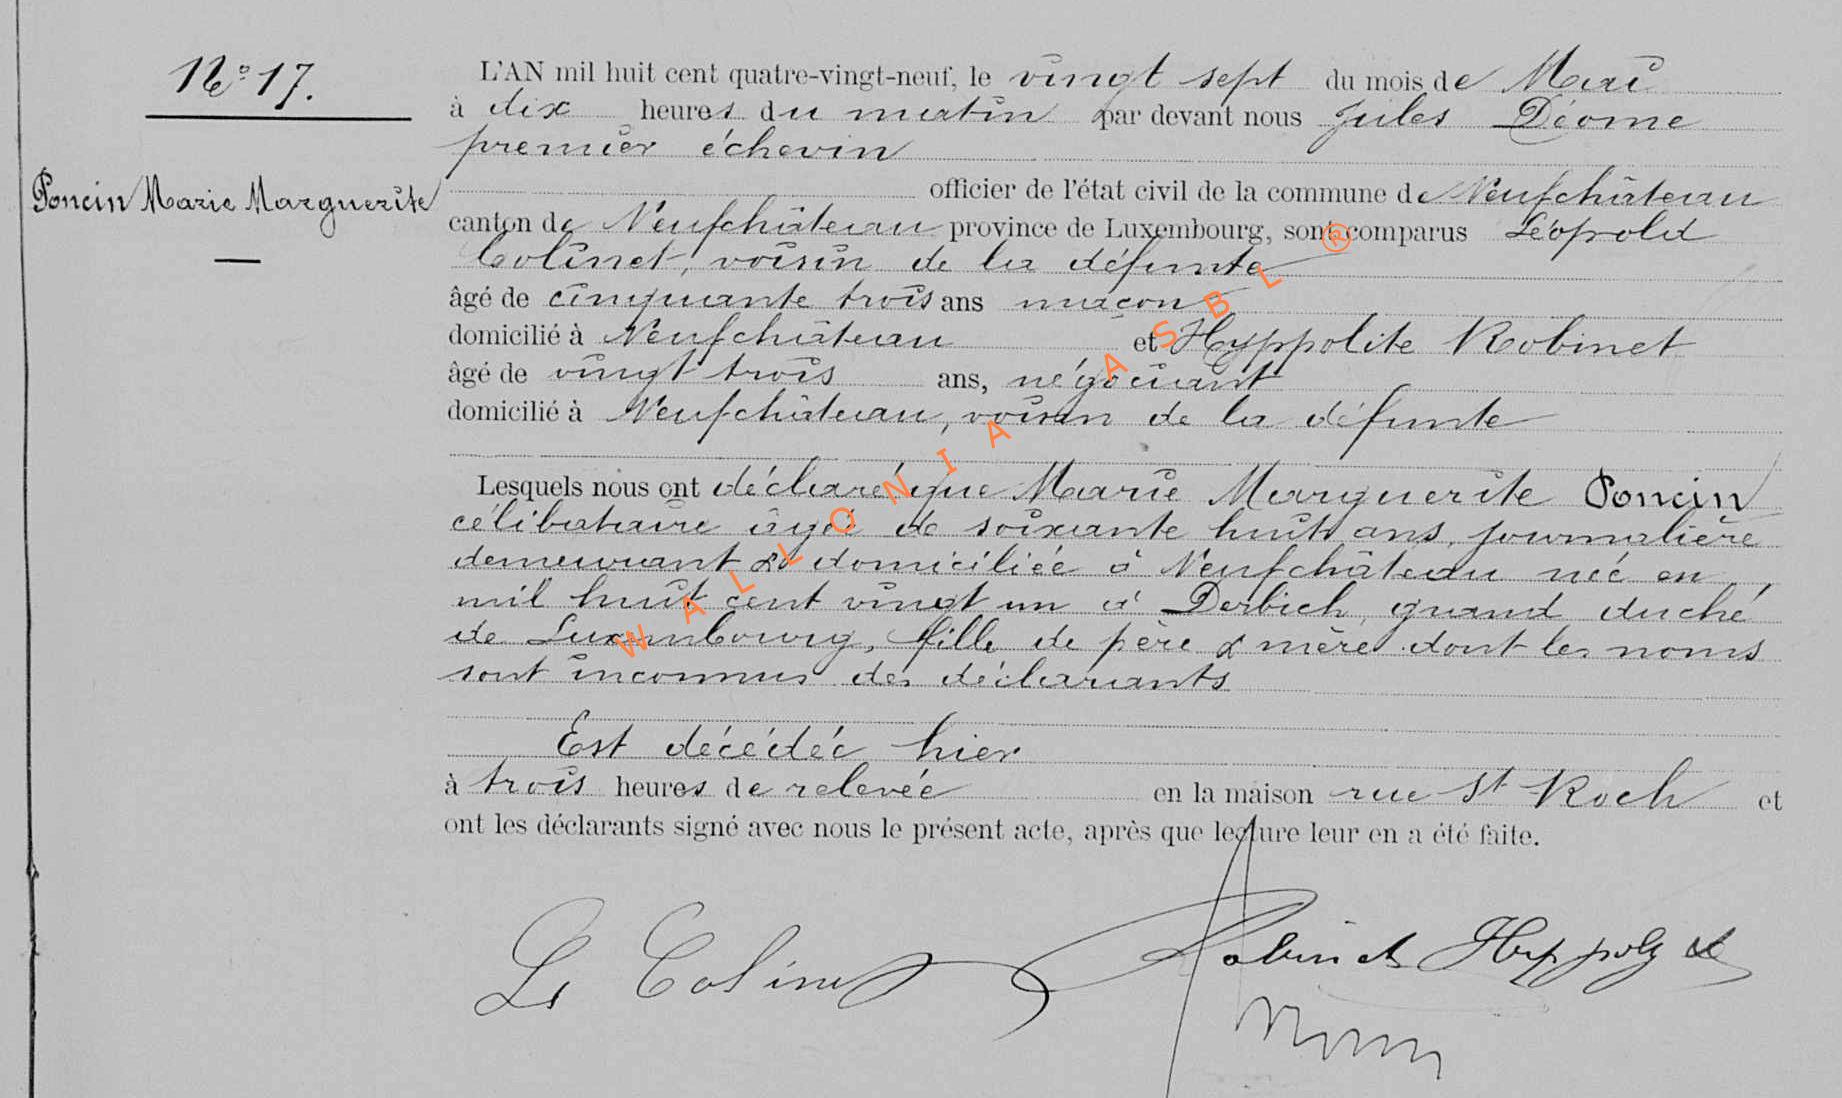 No 17.
Poncin Marie Marguerite
L'AN mil huit cent quatre-vingt-neuf, le vingt sept du mois de Mai
à dix heures du matin par devant nous Jules Déome
premier échevin
officier de l'état civil de la commune de Neufchâteau
canton de Neufchâteau province de Luxembourg, sont comparus Léopold
Colinet, voisin de la défunte
âgé de cinquante trois ans maçon
domicilié à Neufchâteau et Hyppolite Robinet
âgé de vingt trois ans, négociant
domicilié à Neufchâteau, voisin de la défunte
Lesquels nous ont déclaré que Marie Marguerite Poncin
célibataire âgée de soixante huit ans, journalière
demeurant & domiciliée à Neufchâteau née en
mil huit cent vingt un à Derbich, grand duché
de Luxembourg, fille de père & mère dont les noms
sont inconnus des déclarants
Est décédée hier
à trois heures de relevée en la maison rue St Roch et
ont les déclarants signé avec nous le présent acte, après que lecture leur en a été faite.
Colinet Robinet Hyppolite
WALLONIA ASBL ®